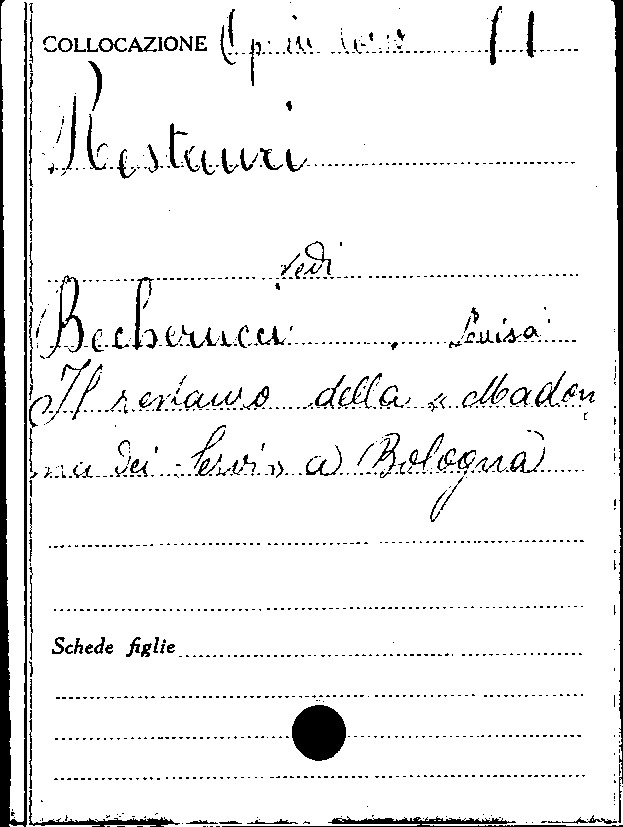 COLLOCAZIONE Op. in corso 11
Restauri
vedi
Becherucci, Luisa
Il restauro della « Madon
na dei Servi» a Bologna
Schede figlie